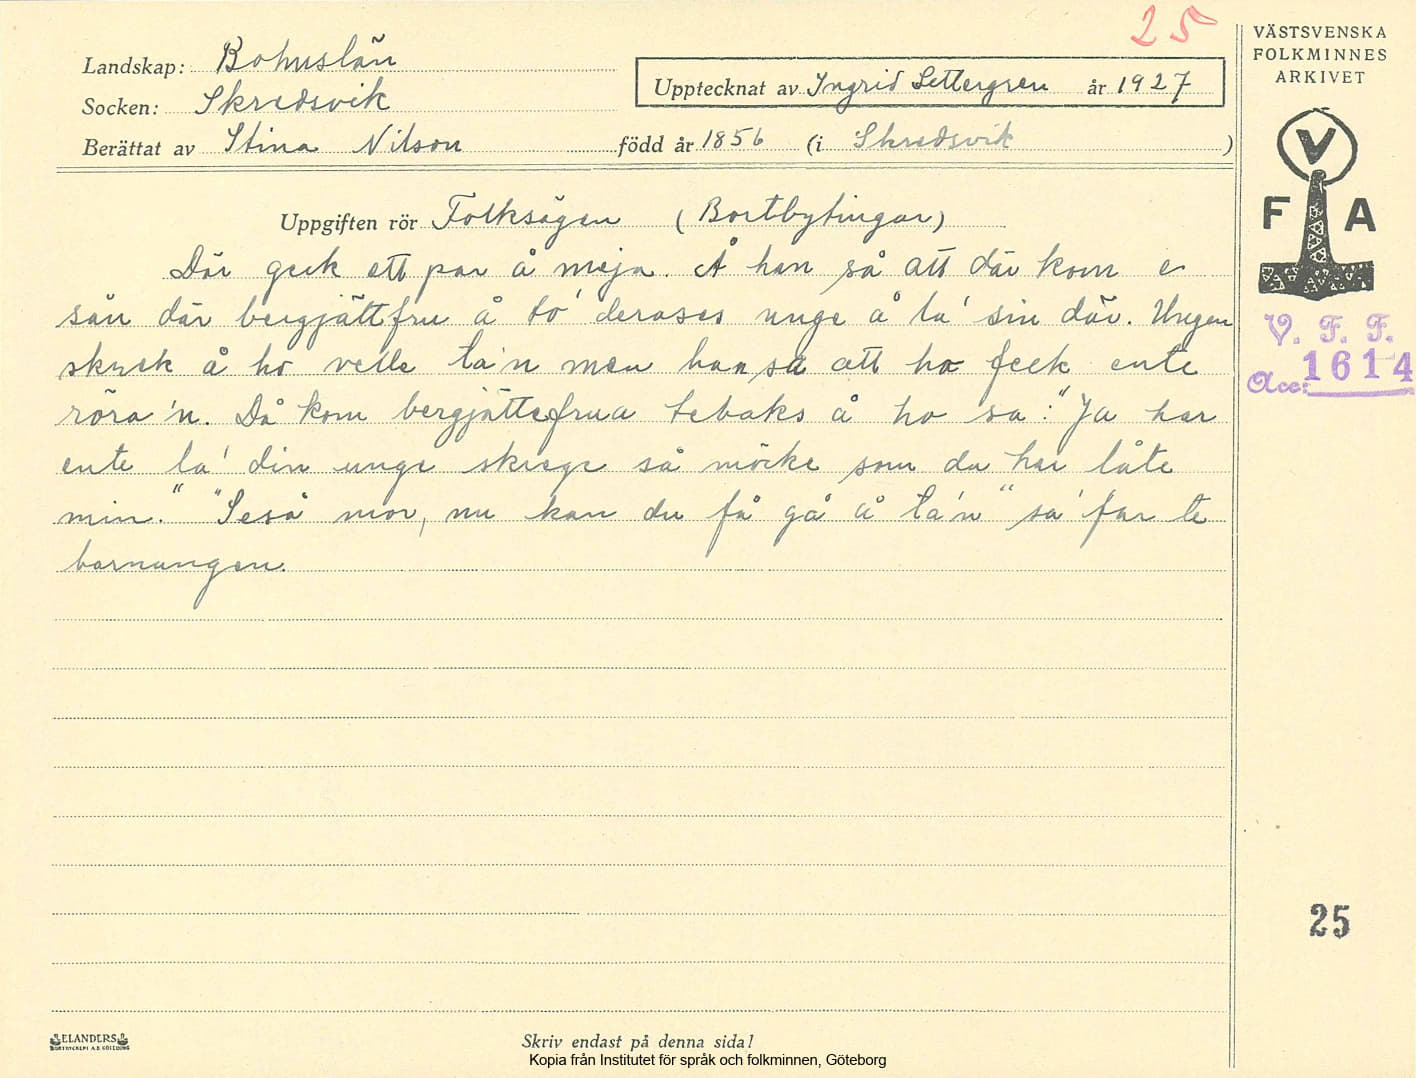 25
VÄSTSVENSKA
FOLKMINNES
ARKIVET
Landskap: Bohuslän
Socken: Skredsvik
Upptecknat av Ingrid Settergren år 1927
Berättat av Stina Nilson född år 1856 (i Skredsvik)
V
F A
Uppgiften rör Folksägen (Bortbytingar)
Där geck ett par å meja. Å han så att där kom e
sån där bergjättfru å to' derases unge å la' sin där. Ungen
skrek å ho velle ta'n men han sa att ho feck ente
röra'n. Då kom bergjättefrua tebaks å ho sa: "Ja har
ente la' din unge skrege så möcke som du har låte
min." "Seså mor, nu kan du få gå å ta'n" sa' far te
barnungen.
V. F. F.
Acc: 1614
25
ELANDERS
BOKTRYCKERI A.B. GÖTEBORG
Skriv endast på denna sida!
Kopia från Institutet för språk och folkminnen, Göteborg